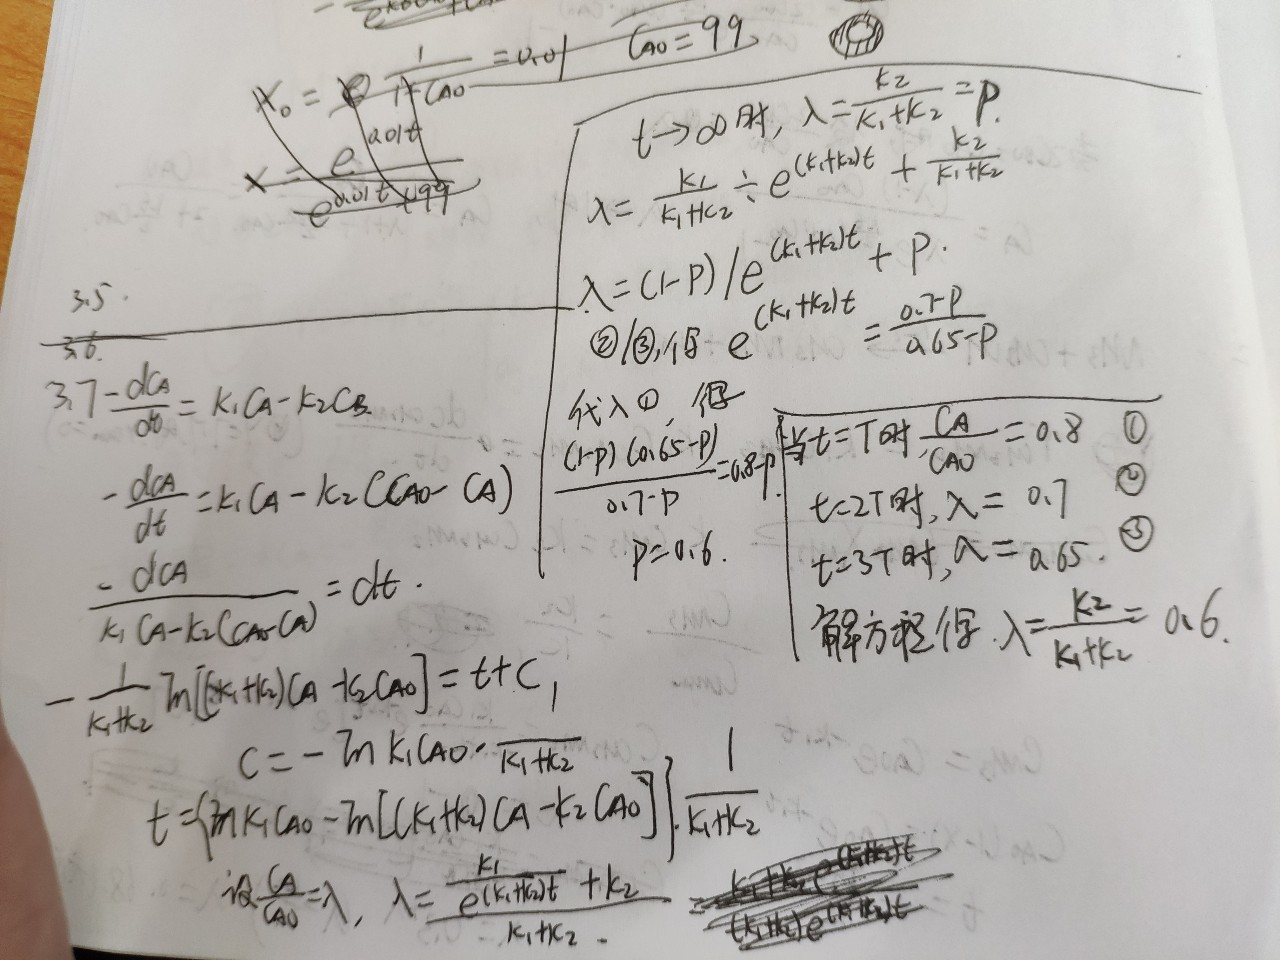 1/(1+CA0) = 0.01 CA0 = 99
x0 =
x = e^0.01t / (e^0.01t + 99)
3.5.
3.6.
3.7 -dCA/dt = K1CA - K2CB
-dCA/dt = K1CA - K2(CA0 - CA)
-dCA / (K1CA - K2(CA0-CA)) = dt.
-1/(K1+K2) ln[(K1+K2)CA - K2CA0] = t + C,
C = -ln K1CA0 · 1/(K1+K2)
t = {ln K1CA0 - ln[(K1+K2)CA - K2CA0]} · 1/(K1+K2)
设 CA/CA0 = λ, λ = (K1/e^(K1+K2)t + K2) / (K1+K2).
t→∞时, λ = K2/(K1+K2) = P.
λ = K1/(K1+K2) ÷ e^(K1+K2)t + K2/(K1+K2)
λ = (1-P)/e^(K1+K2)t + P.
②/③, 得 e^(K1+K2)t = (0.7-P)/(0.65-P)
代入①, 得
(1-P)(0.65-P)/(0.7-P) = 0.8-P.
P = 0.6.
当t=T时 CA/CA0 = 0.8 ①
t=2T时, λ = 0.7 ②
t=3T时, λ = 0.65. ③
解方程得 λ = K2/(K1+K2) = 0.6.